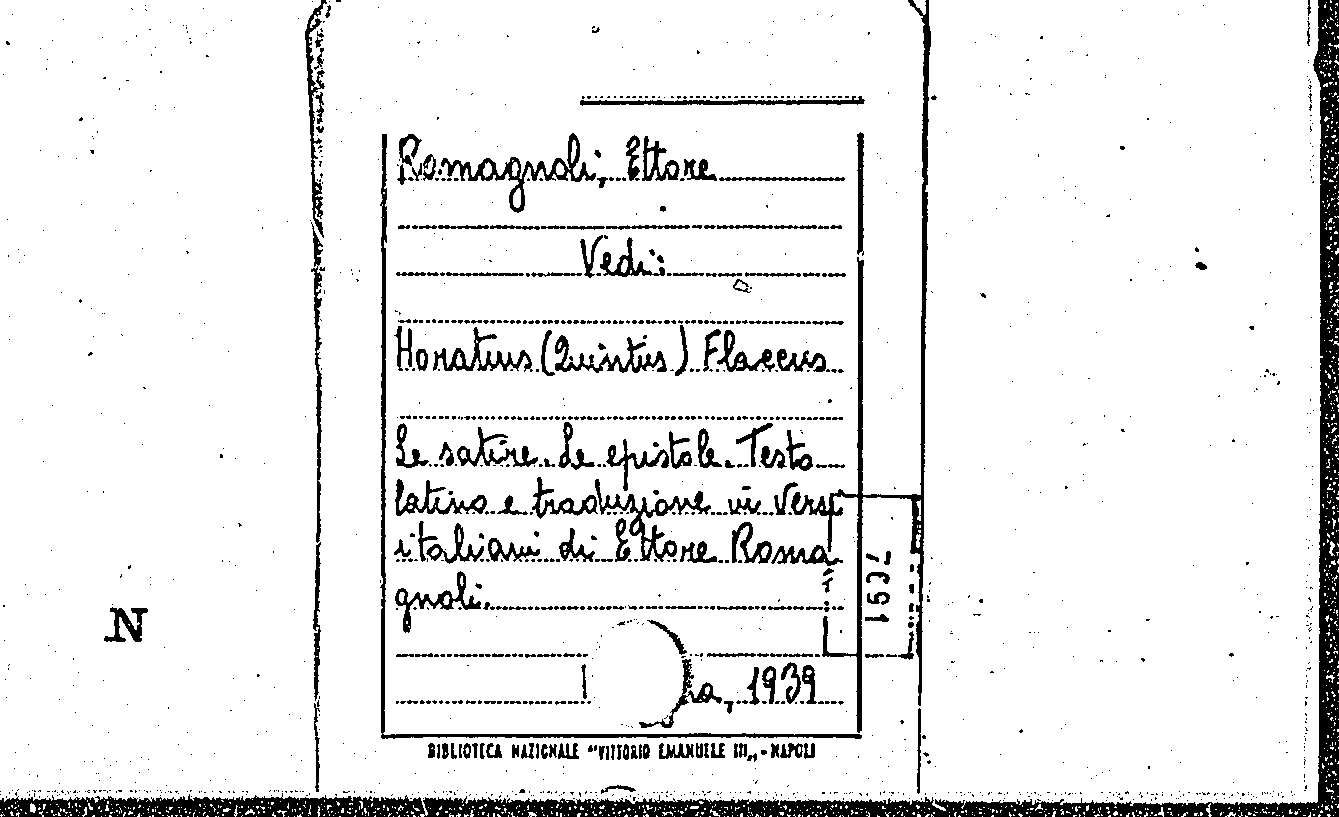 Romagnoli, Ettore
Vedi:
Horatius (Quintus) Flaccus
Le satire. Le epistole. Testo
latino e traduzione in versi
italiani di Ettore Roma
gnoli.
1939
BIBLIOTECA NAZIONALE "VITTORIO EMANUELE III„ - NAPOLI
N